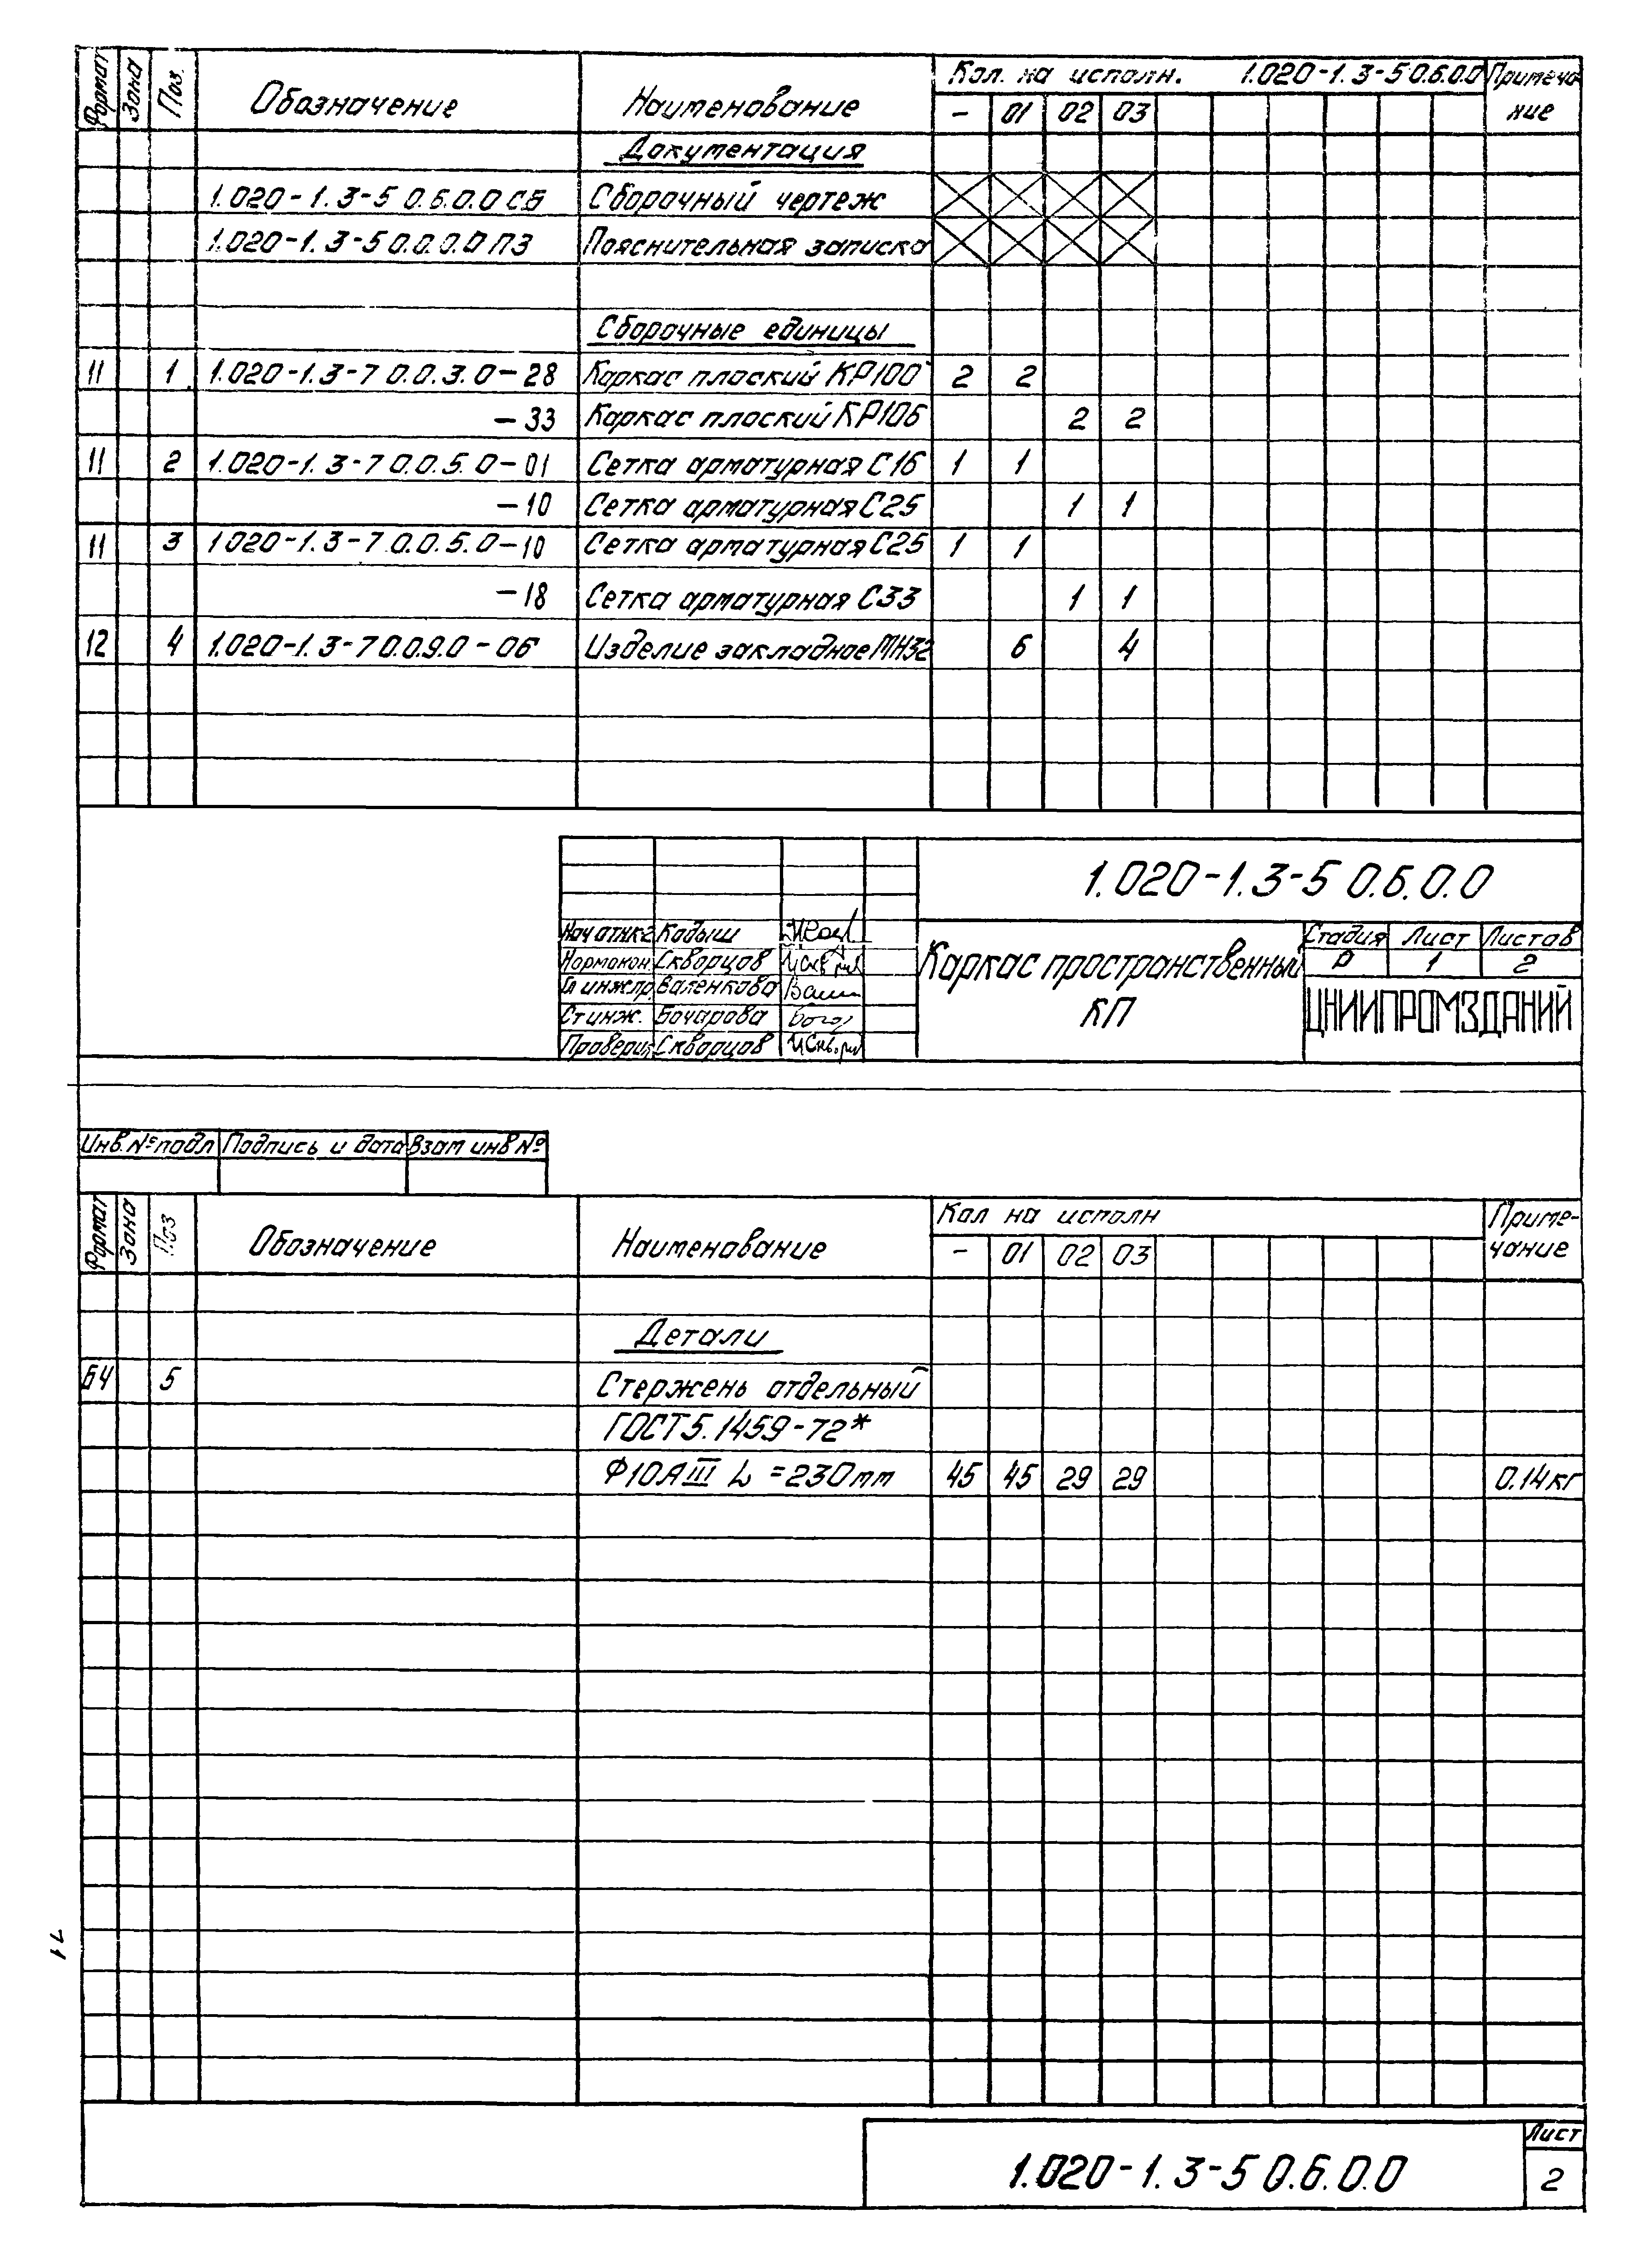 Формат Зона Поз. Обозначение Наименование Кол. на исполн. 1.020-1.3-5 0.6.0.0 Примеча
ние
- 01 02 03
Документация
1.020-1.3-5 0.6.0.0 СБ Сборочный чертеж
1.020-1.3-5 0.0.0.0 ПЗ Пояснительная записка
Сборочные единицы
11 1 1.020-1.3-7 0.0.3.0-28 Каркас плоский КР100 2 2
-33 Каркас плоский КР106 2 2
11 2 1.020-1.3-7 0.0.5.0-01 Сетка арматурная С16 1 1
-10 Сетка арматурная С25 1 1
11 3 1.020-1.3-7.0.0.5.0-10 Сетка арматурная С25 1 1
-18 Сетка арматурная С33 1 1
12 4 1.020-1.3-7 0.0.9.0-06 Изделие закладное МН32 6 4
1.020-1.3-5 0.6.0.0
Нач отиз Кодыш
Нормокон. Скворцов
Гл инж прВаленкова
Ст инж. Бочарова
Проверил Скворцов
Каркас пространственный
КП
Стадия Лист Листов
Р 1 2
ЦНИИПРОМЗДАНИЙ
Инв. № подл Подпись и дата Взам инв №
Формат Зона Поз Обозначение Наименование Кол на исполн Приме-
чание
- 01 02 03
Детали
БЧ 5 Стержень отдельный
ГОСТ 5.1459-72*
Ф10АIII L=230мм 45 45 29 29 0.14кг
71
1.020-1.3-5 0.6.0.0
Лист
2